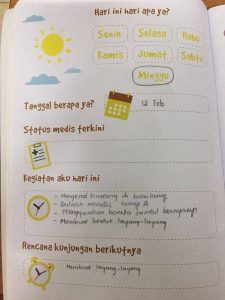 Hari ini hari apa ya?
Senin Selasa Rabu
Kamis Jumat Sabtu
Minggu
Tanggal berapa ya?
12 Feb
Status medis terkini
Kegiatan aku hari ini
- Mengenal binatang di
- menulis huruf A
- benda sambil bernyanyi
- Membuat bentuk layang-layang
Rencana kunjungan berikutnya
Membuat layang-layang